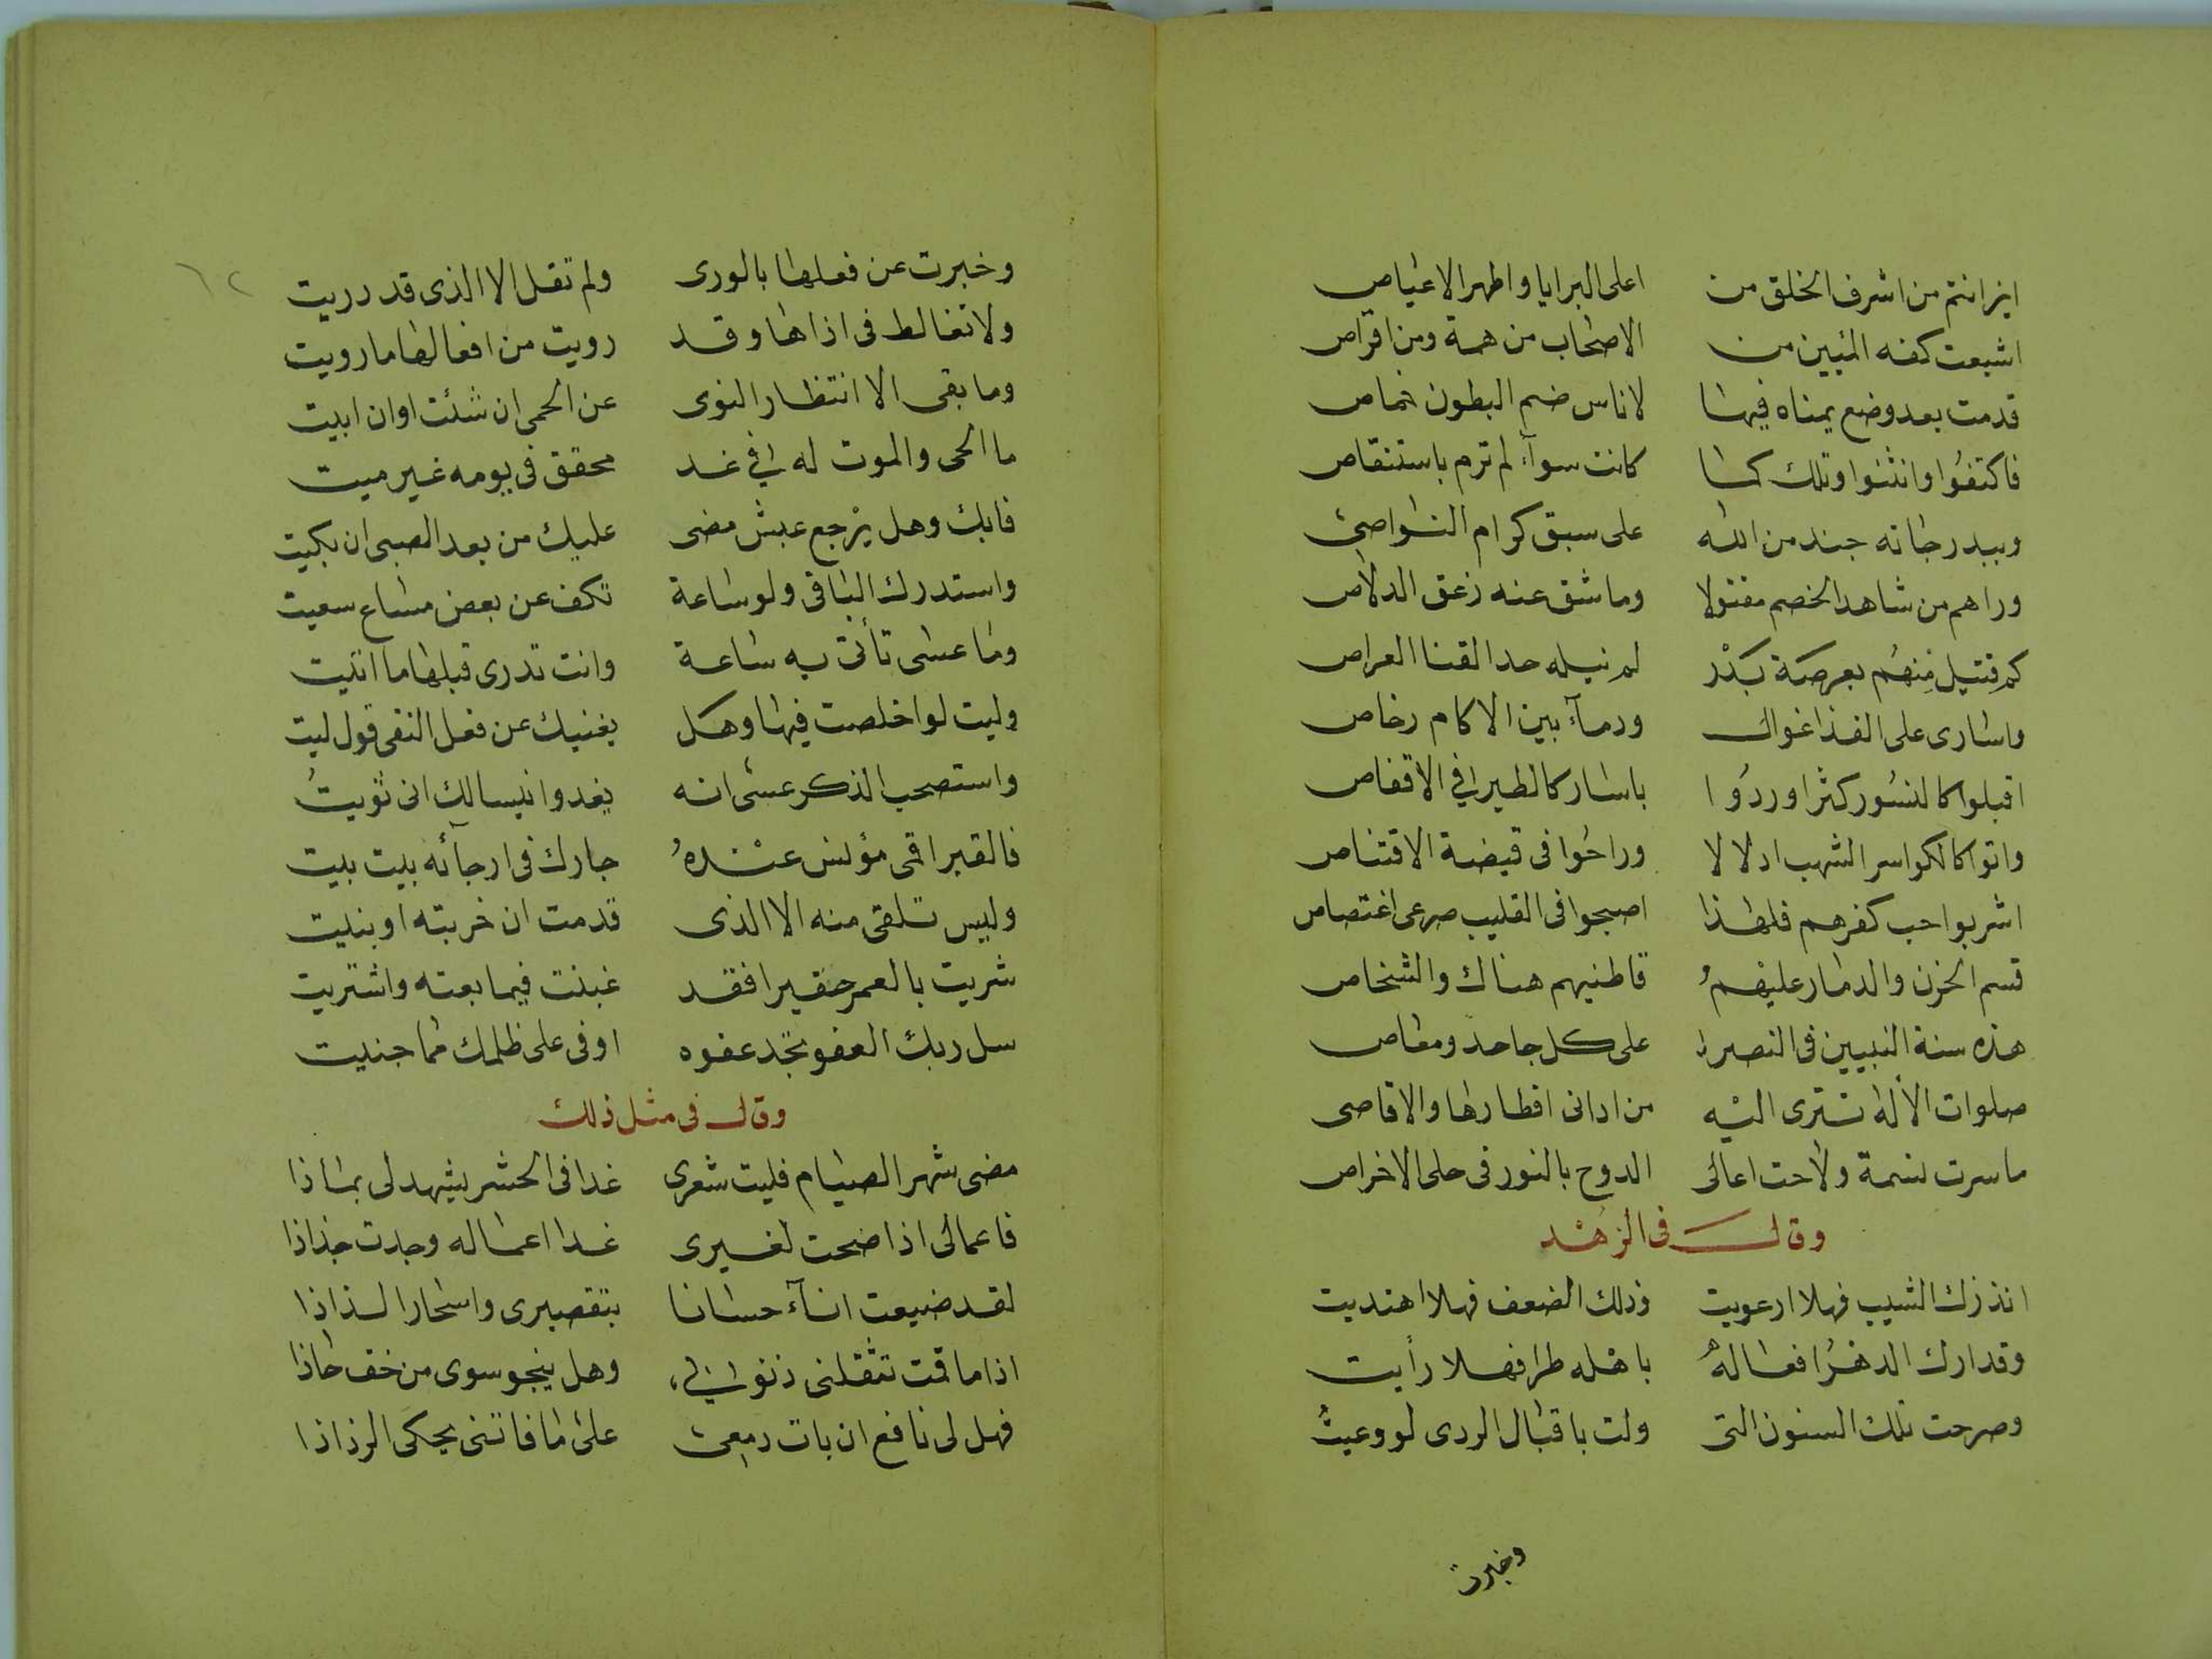 اين انتم من اشرف الخلق من اعلى البرايا واطهر الاعياص
اشبعت كفه المئين من الاصحاب من همة ومن اقراص
قدمت بعد وضع يمناه فيها لاناس ضم البطون خماص
فاكتفوا وانثنوا وتلك كما كانت سوآء لم ترم باستنقاص
وببدر جاته جند من الله على سبق كرام النواصى
وراهم من شاهد الخصم مقتولا وما شق عنه زعق الدلاص
كم قتيل منهم بعرصة بدر لم نيله حد القنا العراص
واسارى على الفذا غوال ودمآء بين الاكام رخاص
اقبلوا كالنسور كثرا وردوا باسار كالطير فى الاقفاص
واتوا كالكواسر الشهب ادلالا وراحوا فى قبضة الاقتناص
اشربوا حب كفرهم فلهذا اصبحوا فى القليب صرعى اغتصاص
قسم الخزن والدمار عليهم قاطنيهم هناك والشخاص
هذه سنة النبيين فى النصر على كل جاحد ومعاص
صلوات الاله تترى اليه من ادانى اقطارها والاقاصى
ما سرت نسمة ولاحت اعالى الدوح بالنور فى حلى الاخراص
وقال فى الزهد
انذرك الشيب فهلا ارعويت وذلك الضعف فهلا اهتديت
وقد ارك الدهر افعاله باهله طرا فهلا رأيت
وصرحت تلك السنون التى ولت باقبال الردى لو وعيت
وخبرت
٦٢
وخبرت عن فعلها بالورى ولم تقل الا الذى قد دريت
ولا تغالط فى اذاها وقد رويت من افعالها ما رويت
وما بقى الا انتظار النوى عن الحمى ان شئت او ان ابيت
ما الحى والموت له فى غد محقق فى يومه غير ميت
فابك وهل يرجع عيش مضى عليك من بعد الصبى ان بكيت
واستدرك الباقى ولو ساعة تكف عن بعض مساع سعيت
وما عسى تأتى به ساعة وانت تدرى قبلها ما اتيت
وليت لو اخلصت فيها وهل يغنيك عن فعل التقى قول ليت
واستصحب الذكر عسى انه يغدو انيسا لك انى ثويت
فالقبر اقمى مؤنس عنده جارك فى ارجآئه بيت بيت
وليس تلقى منه الا الذى قدمت ان خربته او بنيت
شريت بالعمر حقيرا فقد غبنت فيما بعته واشتريت
سل ربك العفو تجد عفوه اوفى على ظلمك مما جنيت
وقال فى مثل ذلك
مضى شهر الصيام فليت شعرى غدا فى الحشر يشهد لى بماذا
فاعمالى اذا ضحت لغيرى غدا اعماله وجدت جذاذا
لقد ضيعت انآء حسانا بتقصيرى واسحارا لذاذا
اذا ما قمت تثقلنى ذنوبى وهل ينجو سوى من خف حاذا
فهل لى نافع ان بات دمعى على ما فاتنى يحكى الرذاذا